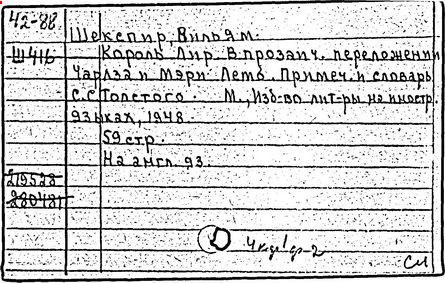 42-88
Шекспир, Вильям.
Ш416 Король Лир. В прозаич. переложении
Чарлза и Мэри Лемб. Примеч. и словарь
С.С. Толстого. М., Изд-во лит-ры на иностр.
языках, 1948.
59 стр.
На англ. яз.
219528
280481